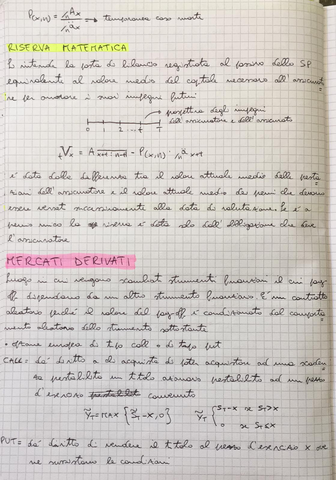 P(x,n) = /nAx / /näx → temporanea caso morte
RISERVA MATEMATICA
Si intende la posta di bilancio registrata al passivo dello SP
equivalente al valore medio del capitale necessario all'assicurato
re per onorare i suoi impegni futuri.
prospettiva degli impegni
dell'assicuratore e dell'assicurato
0 1 2 t T
tVx = A x+t : n-t - P(x,n) · äx+t
è data dalla differenza tra il valore attuale medio delle presta
zioni dell'assicuratore e il valore attuale medio dei premi che devono
essere versati successivamente alla data di valutazione. Se è a
premio unico la riserva è data solo dall'obbligazione che deve
l'assicuratore
MERCATI DERIVATI
Luogo in cui vengono scambiati strumenti finanziari il cui pay
off dipendano da un altro strumento finanziario. È un contratto
aleatorio perché il valore del pay-off è condizionato dal comporta
mento aleatorio dello strumento sottostante
• opzione europea di tipo call o di tipo put
CALL = dà diritto a di acquistare ad una scaden
za prestabilita un titolo azionario prestabilito ad un prezzo
d'esercizio convenuto
ỸT = MAX {S̃T - X, 0} ỸT { ST - X se ST > X
0 se ST ≤ X
PUT = dà diritto di vendere il titolo al prezzo d'esercizio X se
ne sussistano le condizioni